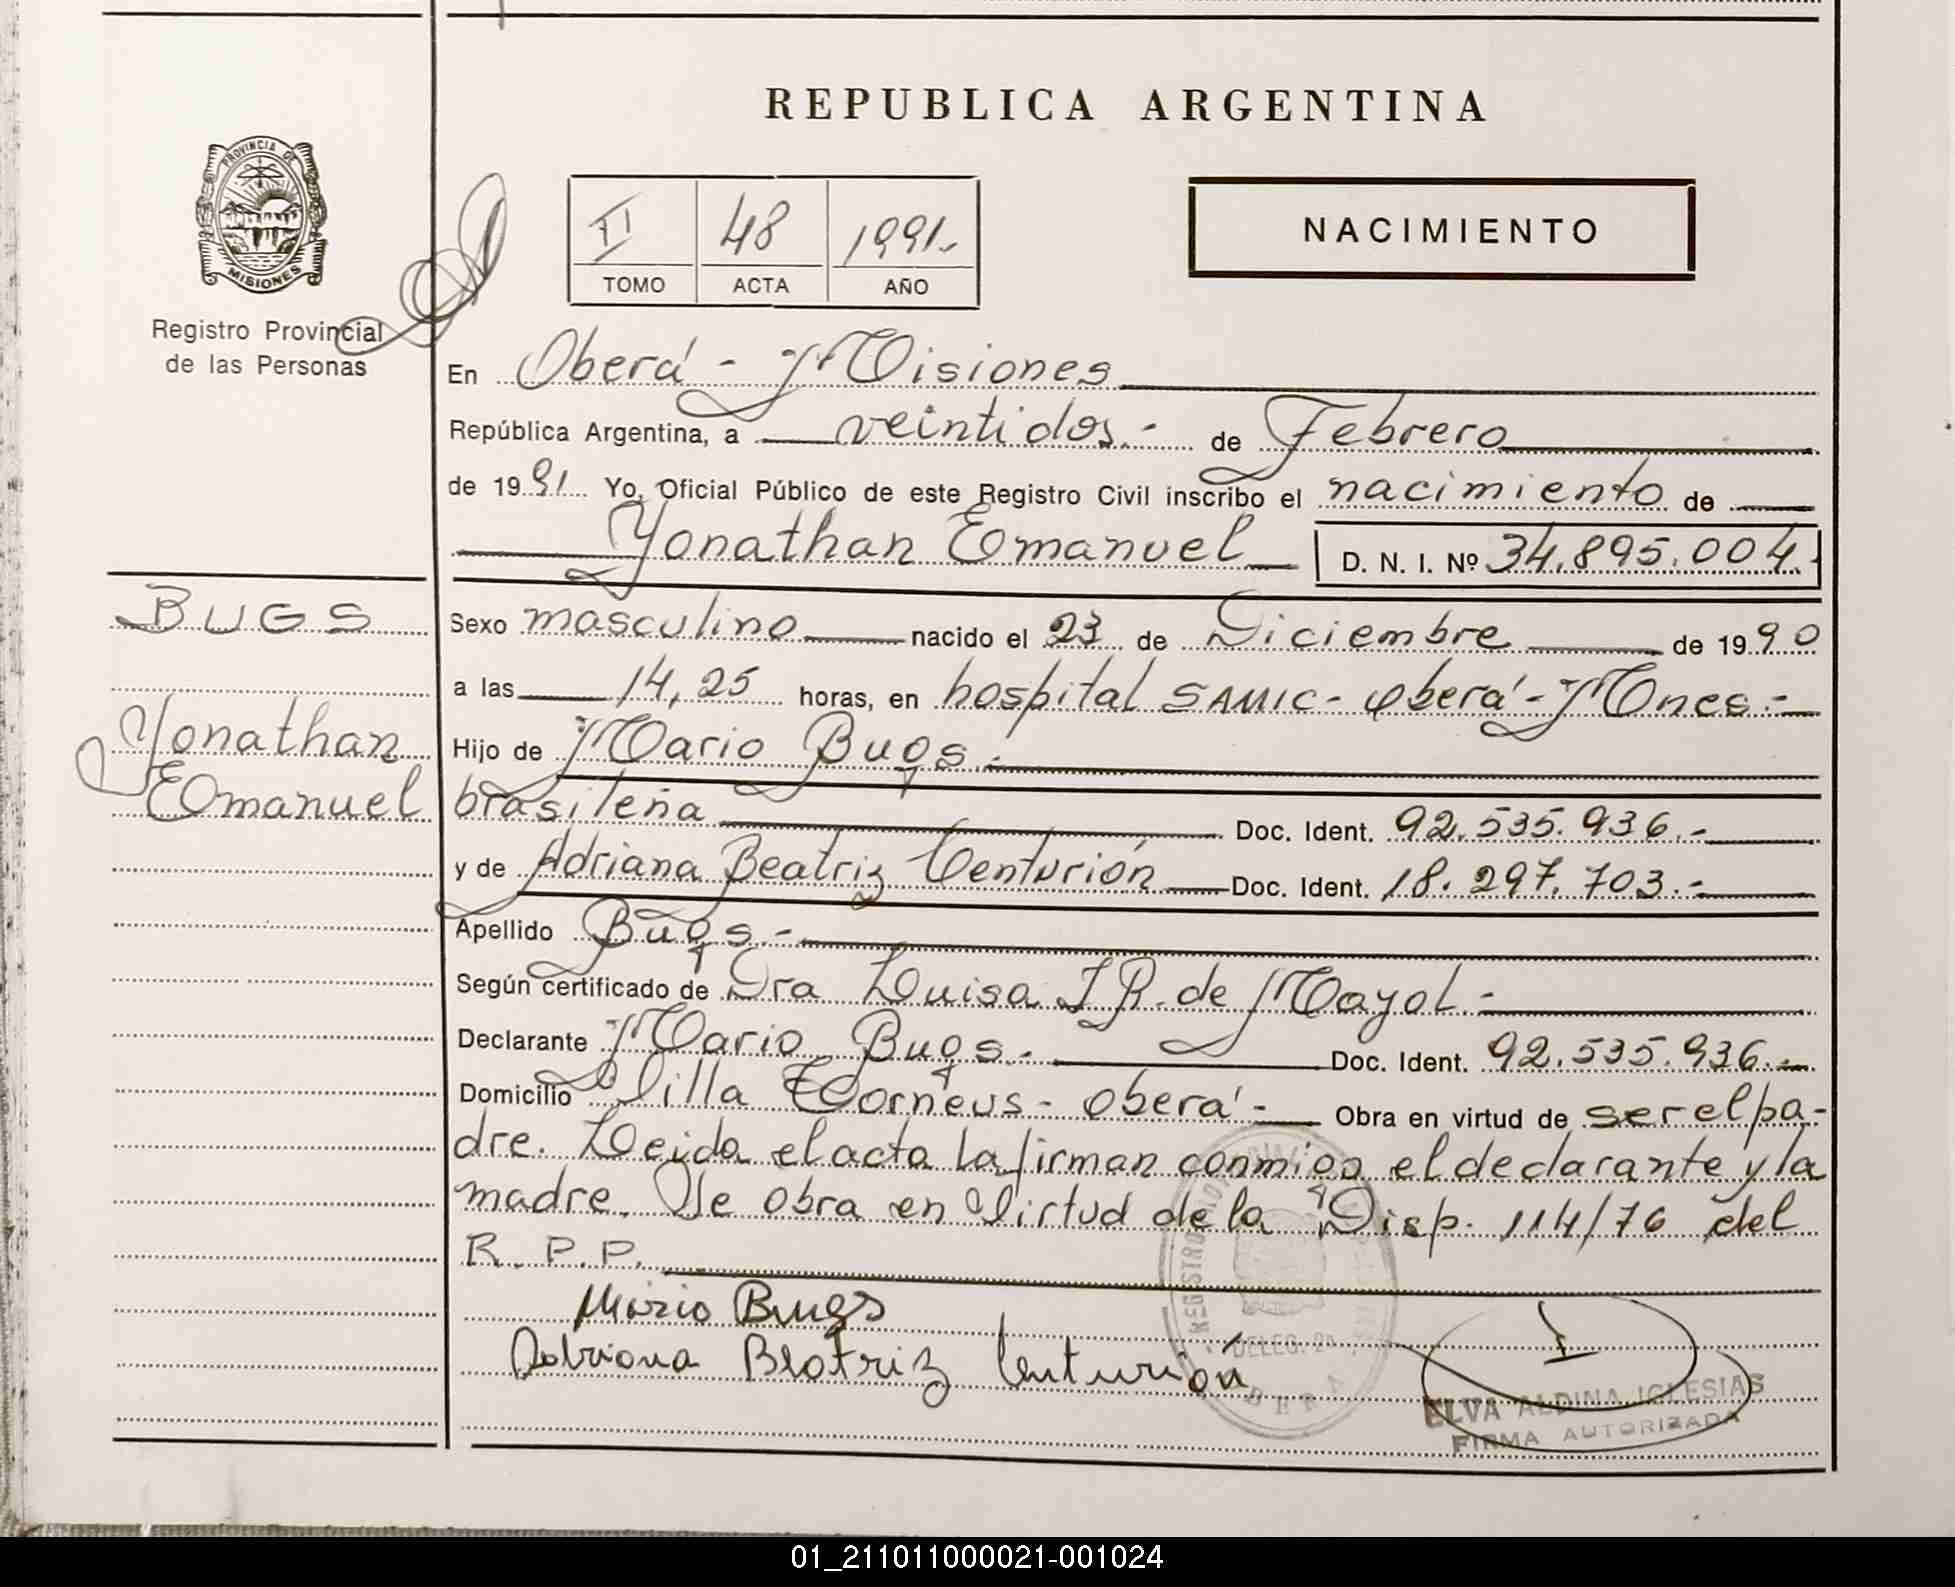 REPUBLICA ARGENTINA
PROVINCIA DE MISIONES
Registro Provincial
de las Personas
II 48 1991.-
TOMO ACTA AÑO
NACIMIENTO
En Oberá - Misiones
República Argentina, a veintidos.- de Febrero
de 1991 Yo, Oficial Público de este Registro Civil inscribo el nacimiento de
Yonathan Emanuel D. N. I. Nº 34.895.004.-
BUGS
Yonathan
Emanuel
Sexo masculino nacido el 23 de Diciembre de 1990
a las 14,25 horas, en hospital SAMIC - Oberá - Mnes.-
Hijo de Mario Bugs.-
brasileña Doc. Ident. 92.535.936.-
y de Adriana Beatriz Centurión Doc. Ident. 18.297.703.-
Apellido Bugs.-
Según certificado de Dra Luisa I R. de Mayol.-
Declarante Mario Bugs.- Doc. Ident. 92.535.936.-
Domicilio Villa Torneus - Oberá - Obra en virtud de ser el pa-
dre. Leida el acta la firman conmigo el declarante y la
madre. Se obra en Virtud de la Disp. 114/76 del
R. P. P.
Mario Bugs
Adriana Beatriz Centurión
DELEG.
ELVA ALDINA IGLESIAS
FIRMA AUTORIZADA
01_211011000021-001024